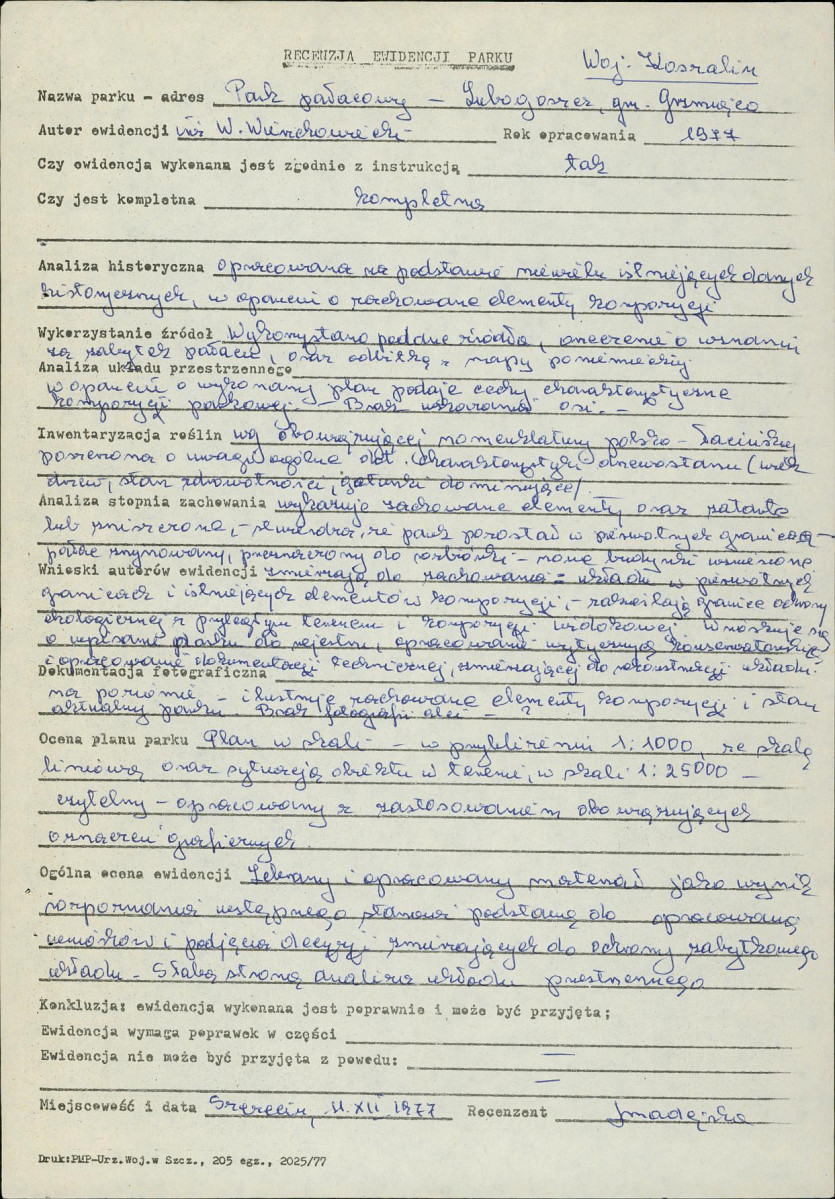 RECENZJA EWIDENCJI PARKU
Woj. Koszalin
Nazwa parku - adres Park pałacowy - Lubogoszcz, gm. Grzmiąca
Autor ewidencji inż W. Wierchowiecki Rok opracowania 1977
Czy ewidencja wykonana jest zgodnie z instrukcją tak
Czy jest kompletna kompletna
Analiza historyczna opracowana na podstawie niewielu istniejących danych
historycznych, w oparciu o zachowane elementy kompozycji
Wykorzystanie źródeł Wykorzystano podane źródła, orzeczenie o uznaniu
za zabytek pałacu, oraz odbitkę z mapy poniemieckiej
Analiza układu przestrzennego
w oparciu o wykonany plan podaje cechy charakterystyczne
kompozycji parkowej. - Brak wskazania osi. -
Inwentaryzacja roślin wg obowiązującej nomenklatury polsko - łacińskiej
poszerzona o uwagi ogólne dot. charakterystyki drzewostanu (wiek
drzew, stan zdrowotności, gatunki dominujące).
Analiza stopnia zachowania wykazuje zachowane elementy oraz zatarte
lub zniszczone, - stwierdza, że park pozostał w pierwotnych granicach -
pałac zrujnowany, przeznaczony do rozbiórki - nowe budynki wzniesione
Wnioski autorów ewidencji zmierzają do zachowania układu w pierwotnych
granicach i istniejących elementów kompozycji, - zakreślają granice ochrony
ekologicznej z przyległym terenem i kompozycji widokowej. Wnioskuje się
o wpisanie parku do rejestru, opracowanie wytycznych konserwatorskich
i opracowanie dokumentacji technicznej, zmierzającej do rekonstrukcji układu.
Dokumentacja fotograficzna
na poziomie - ilustruje zachowane elementy kompozycji i stan
aktualny parku. Brak fotografii alei -
Ocena planu parku Plan w skali - w przybliżeniu 1:1000, ze skalą
liniową oraz sytuacją obiektu w terenie, w skali 1:25000 -
czytelny - opracowany z zastosowaniem obowiązujących
oznaczeń graficznych.
Ogólna ocena ewidencji Zebrany i opracowany materiał jako wynik
rozpoznania wstępnego stanowi podstawę do opracowania
wniosków i podjęcia decyzji zmierzających do ochrony zabytkowego
układu - Słabą stroną analiza układu przestrzennego
Konkluzja: ewidencja wykonana jest poprawnie i może być przyjęta;
Ewidencja wymaga poprawek w części
Ewidencja nie może być przyjęta z powodu: —
—
Miejscowość i data Szczecin, 11.XII.1977 Recenzent
Druk:PMP-Urz.Woj.w Szcz., 205 egz., 2025/77